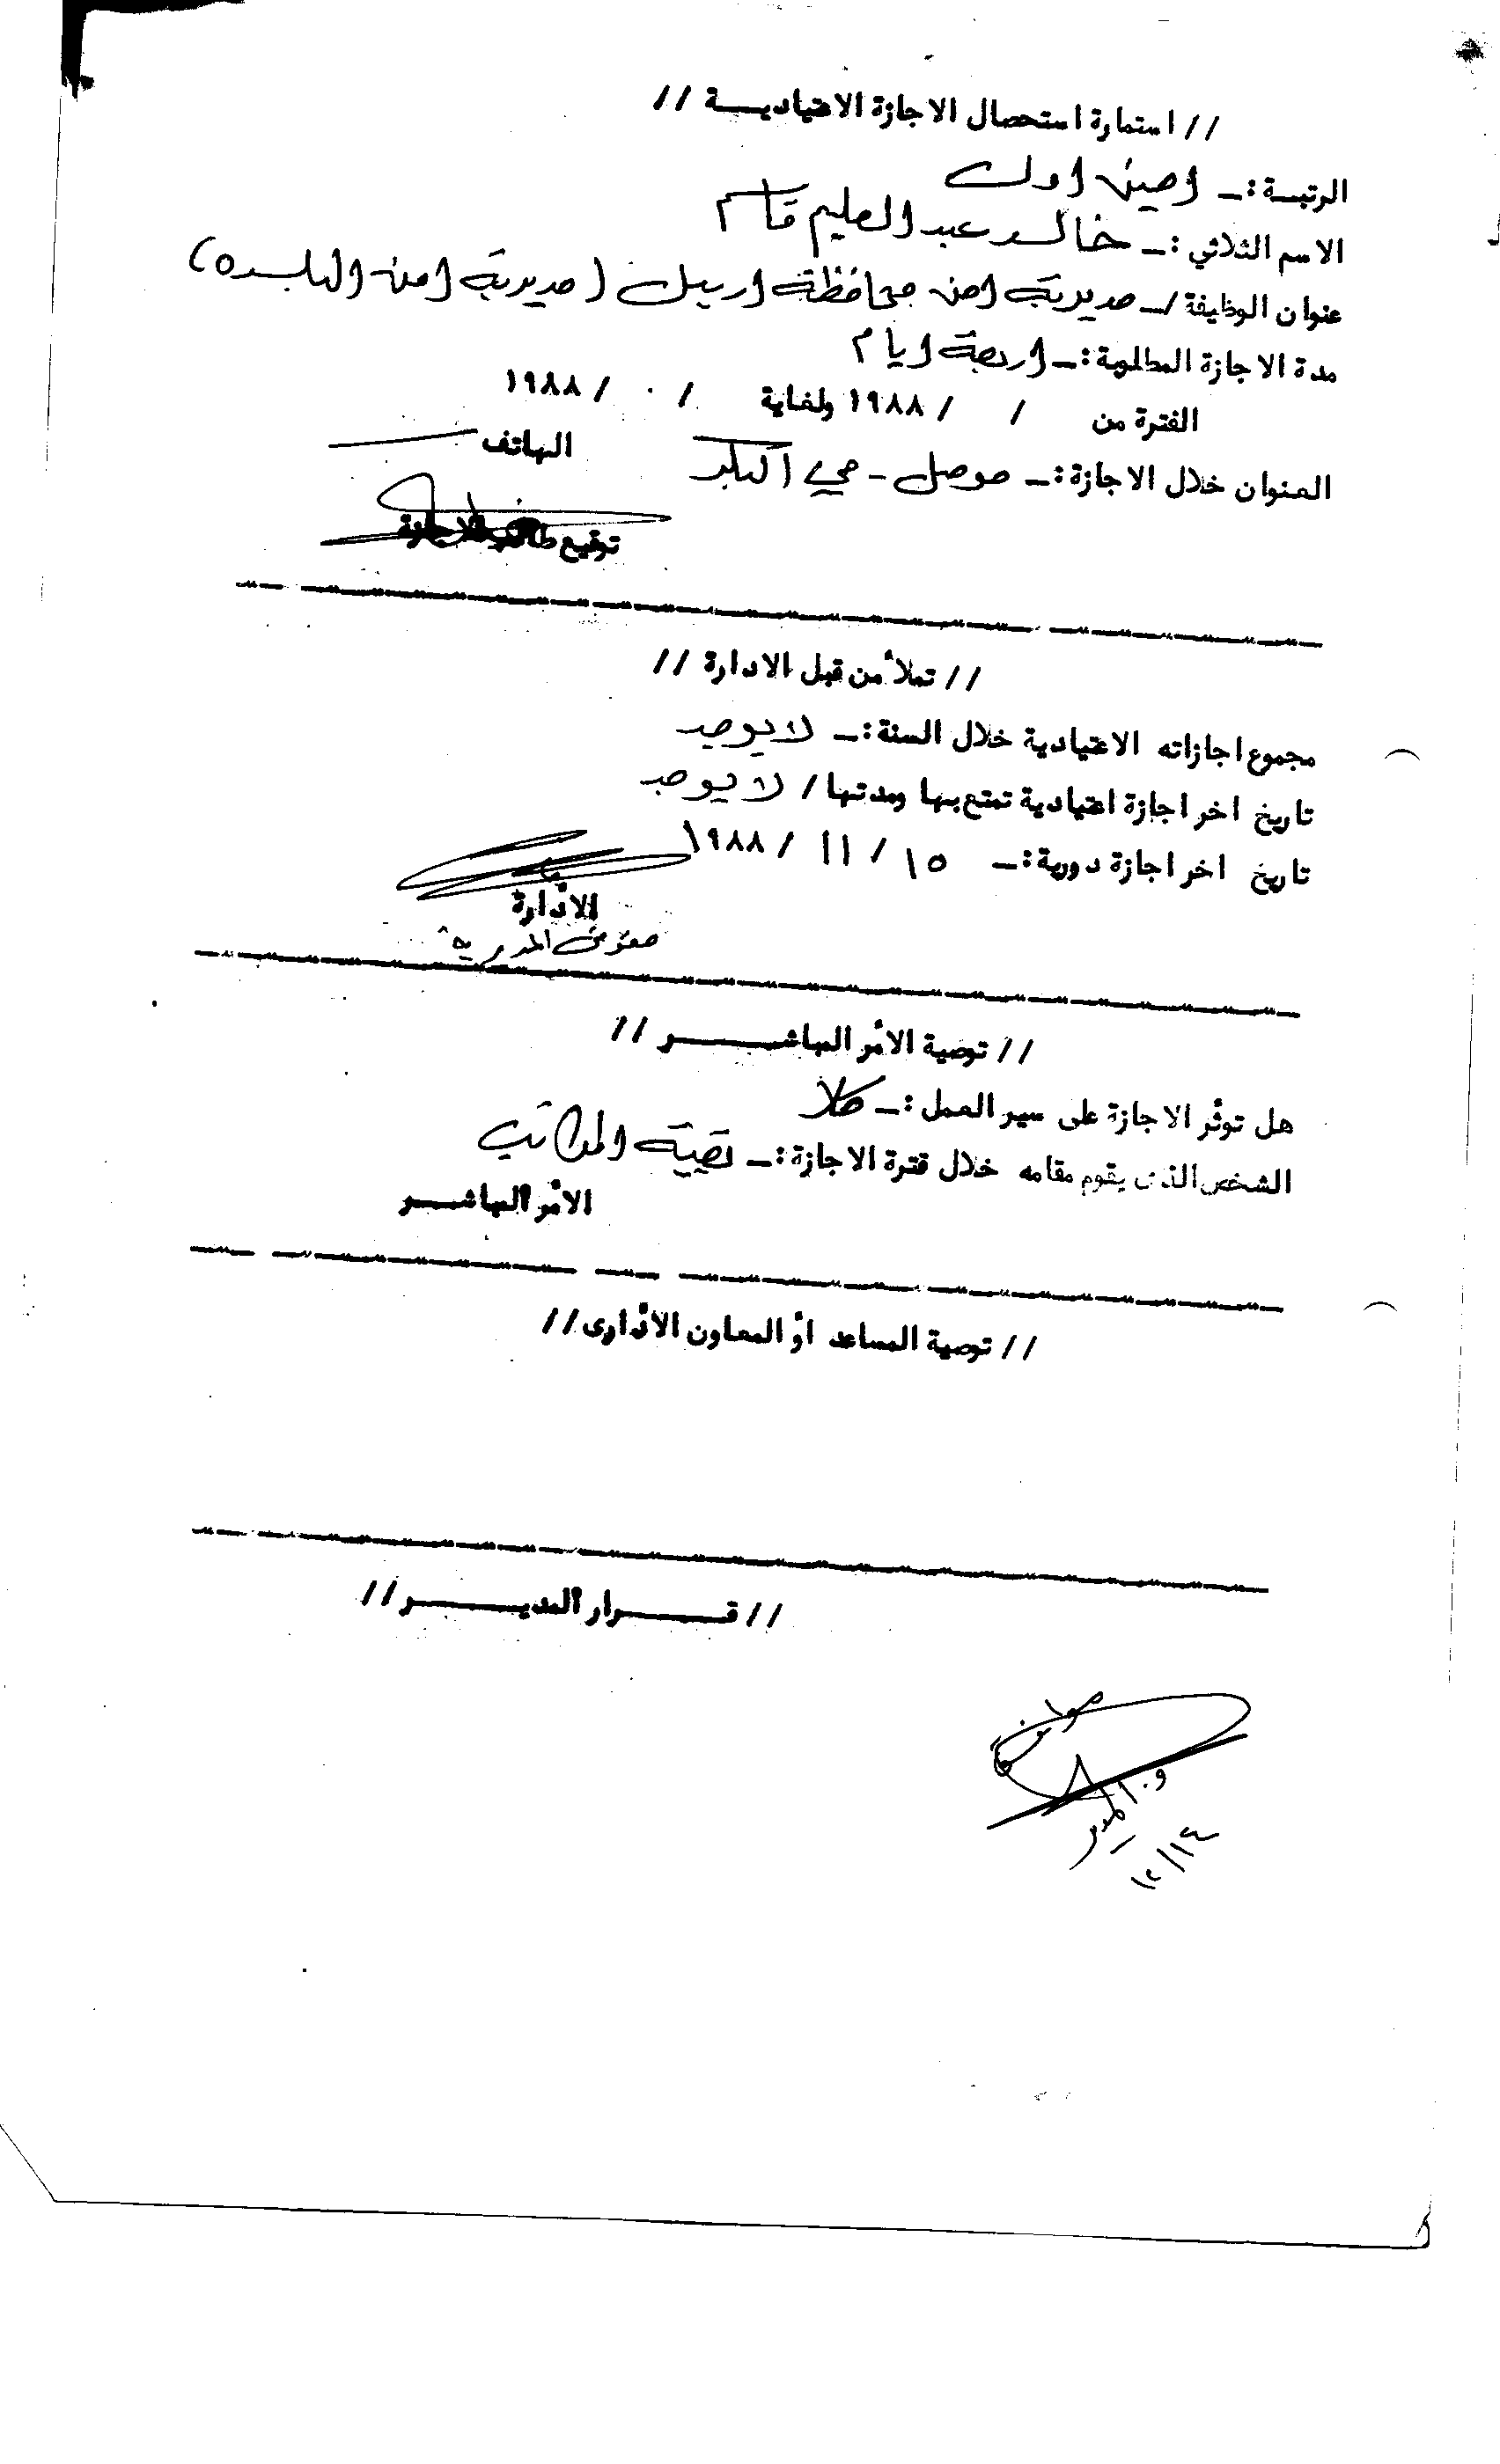 // استمارة استحصال الاجازة الاعتياديـــة //
الرتبـة :ـ امين اول
الاسم الثلاثي :ـ خالد عبد العليم قاسم
عنوان الوظيفة /ـ مديرية امن محافظة اربيل (مديرية امن البلده)
مدة الاجازة المطلوبة :ـ اربعة ايام
الفترة من / / ١٩٨٨ ولغاية / ٠ / ١٩٨٨
العنوان خلال الاجازة :ـ موصل - حي البكر الهاتف
توقيع طالب الاجازة
// تملأ من قبل الادارة //
مجموع اجازاته الاعتيادية خلال السنة :ـ لا يوجد
تاريخ اخر اجازة اعتيادية تمتع بها ومدتها / لا يوجد
تاريخ اخر اجازة دورية :ـ ١٥ / ١١ / ١٩٨٨
الادارة
// توصية الآمر المباشـــــر //
هل توثر الاجازة على سير العمل :ـ كلا
الشخص الذى يقوم مقامه خلال فترة الاجازة :ـ بقية المراتب
الآمر المباشـــر
// توصية المساعد أو المعاون الادارى //
// قــــــرار المديـــــــر //
موافق
المدير
١٢/١٤